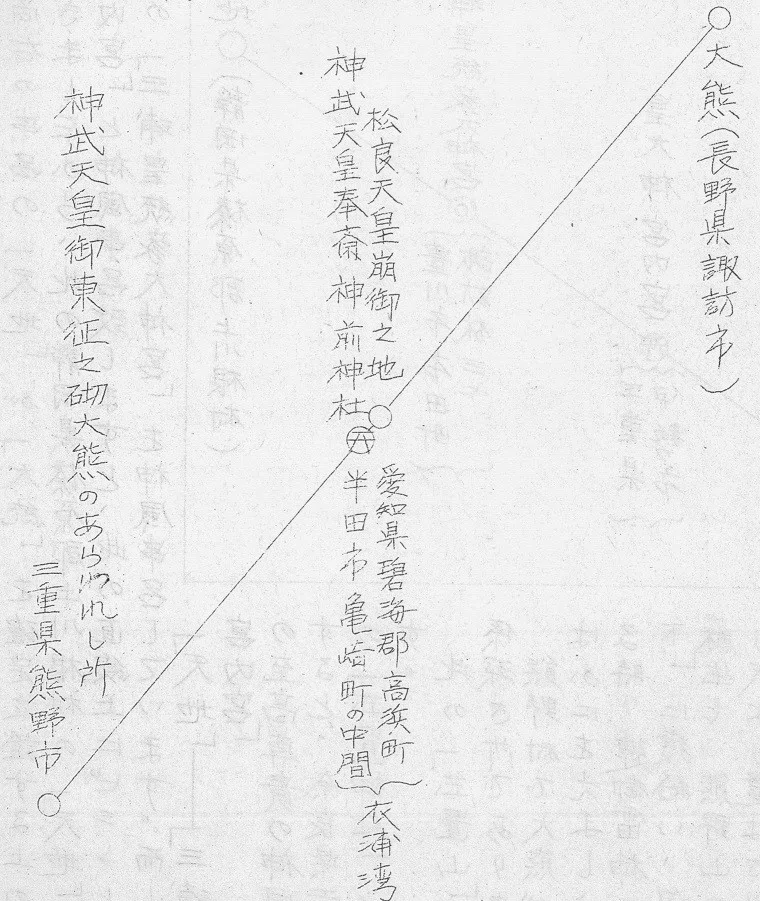 大熊(長野県諏訪市)
松良天皇崩御之地
神武天皇奉斎神前神社
愛知県碧海郡高浜町
半田市亀崎町の中間
衣浦湾
神武天皇御東征之砌大熊のあらわれし所
三重県熊野市